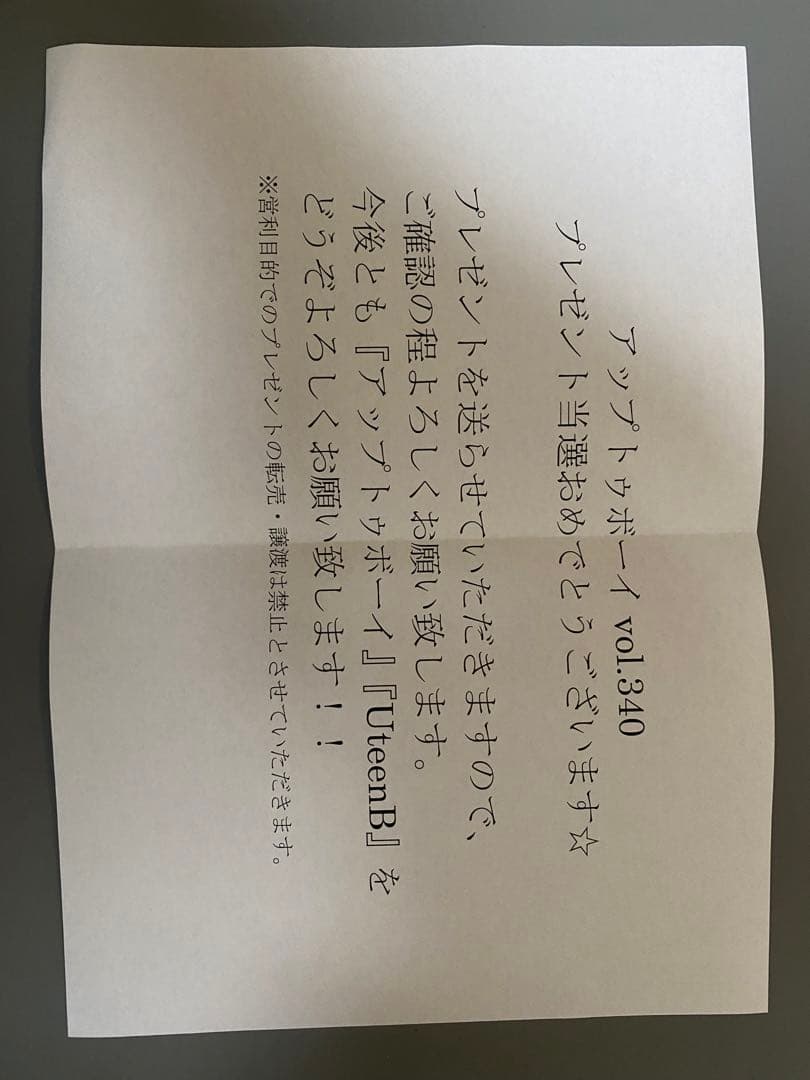 アップトゥボーイ vol.340
プレゼント当選おめでとうございます☆
プレゼントを送らせていただきますので、
ご確認の程よろしくお願い致します。
今後とも『アップトゥボーイ』『UteenB』を
どうぞよろしくお願い致します！！
※営利目的でのプレゼントの転売・譲渡は禁止とさせていただきます。